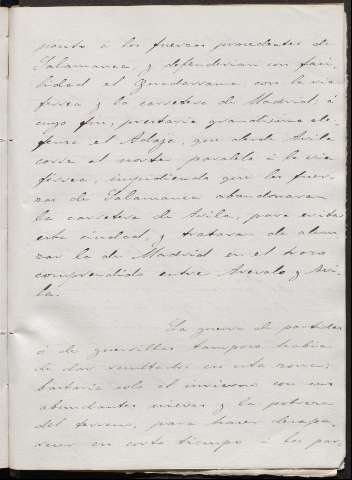 ponde á las fuerzas procedentes de
Salamanca, y defenderian con faci-
lidad el Guadarrama, con la via
ferrea y la carretera de Madrid, á
cuyo fin, prestaria grandisima de-
fensa el Adaja, que desde Avila
corre al norte paralelo á la via
ferrea, impidiendo que las fuer-
zas de Salamanca abandonaran
la carretera de Avila, para evitar
esta ciudad, y trataran de alcan-
zar la de Madrid en el trozo
comprendido entre Arevalo y Avi-
la.
La guerra de partidas
ó de guerrillas tampoco habia
de dar resultados en esta zona;
bastaria solo el invierno con sus
abundantes nieves y la pobreza
del terreno, para hacer desapa-
recer en corto tiempo á los par-